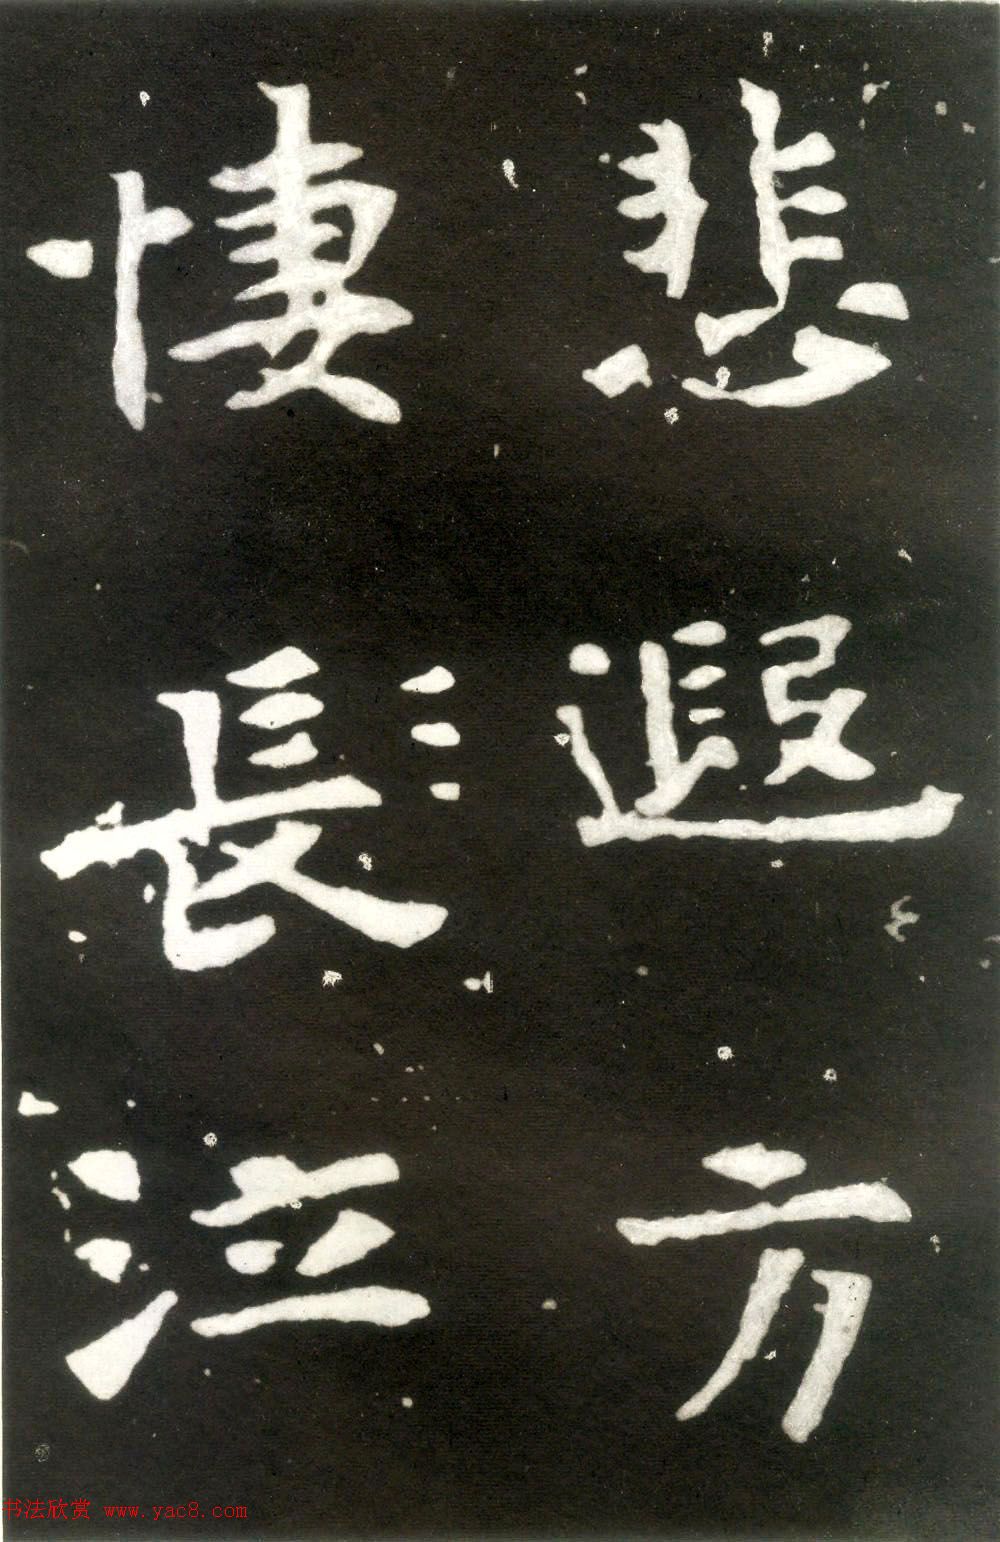 悲遐方
悽長泣
书法欣赏 www.yac8.com